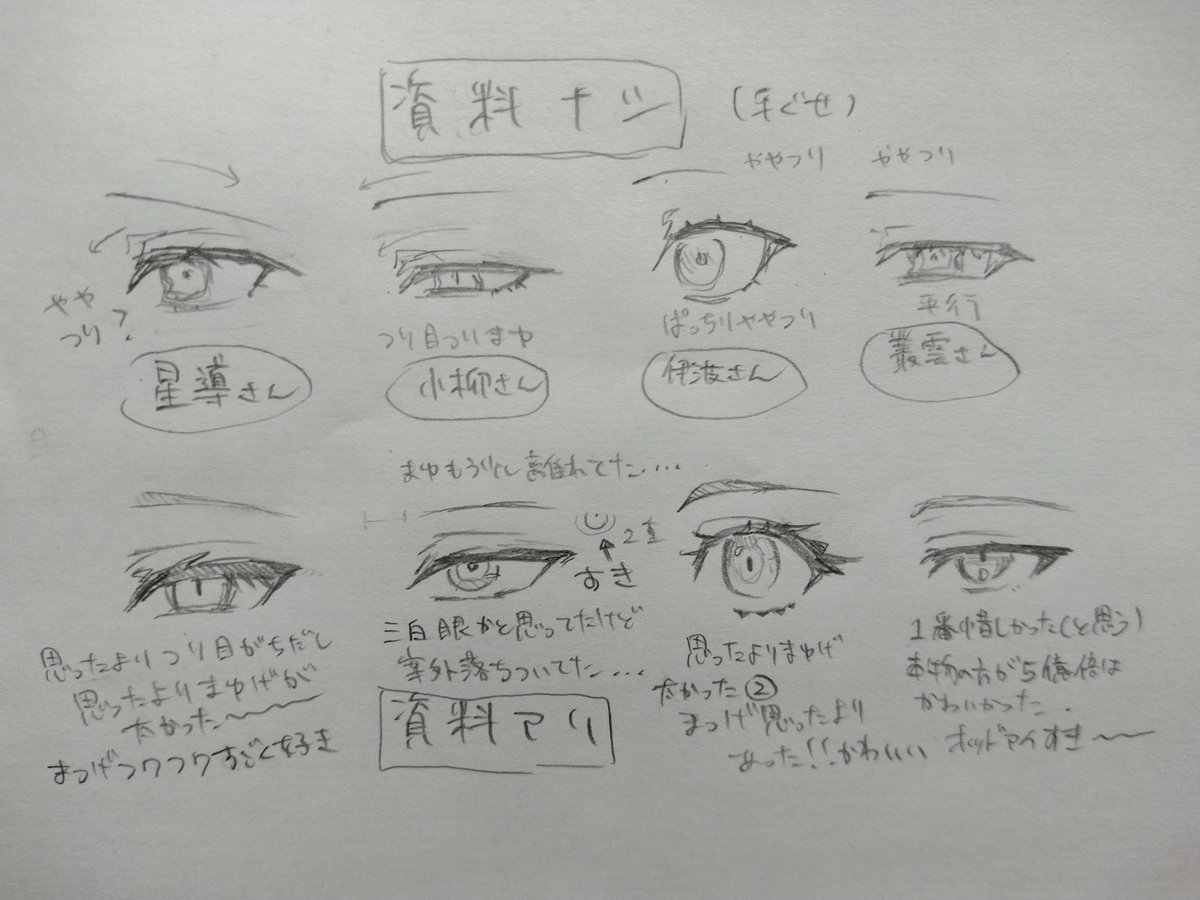 資料ナシ
(手ぐせ)
ややつり
ややつり
やや
つり?
つり目つりまゆ
ぱっちりややつり
平行
星導さん
小柳さん
伊波さん
叢雲さん
まゆもう少し離れてた....
2重
すき
思ったよりつり目がちだし
思ったよりまゆげが
太かった〜〜〜
まつげフワフワすごく好き
三白眼かと思ってたけど
案外落ちついてた...
思ったよりまゆげ
太かった②
まつげ思ったより
あった!!かわいい
1番惜しかった(と思う)
本物の方が5億倍は
かわいかった.
ホッドアイすき〜〜
資料アリ